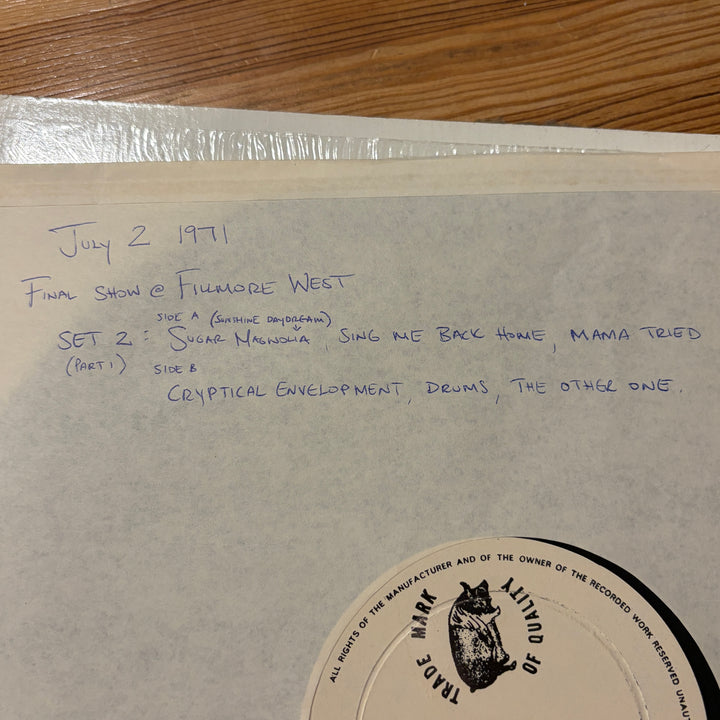 July 2 1971
FINAL SHOW @ FILLMORE WEST
SIDE A (SUNSHINE DAYDREAM)
SET 2 : SUGAR MAGNOLIA, SING ME BACK HOME, MAMA TRIED
(PART 1) SIDE B
CRYPTICAL ENVELOPMENT, DRUMS, THE OTHER ONE.
ALL RIGHTS OF THE MANUFACTURER AND OF THE OWNER OF THE RECORDED WORK RESERVED
TRADE MARK OF QUALITY